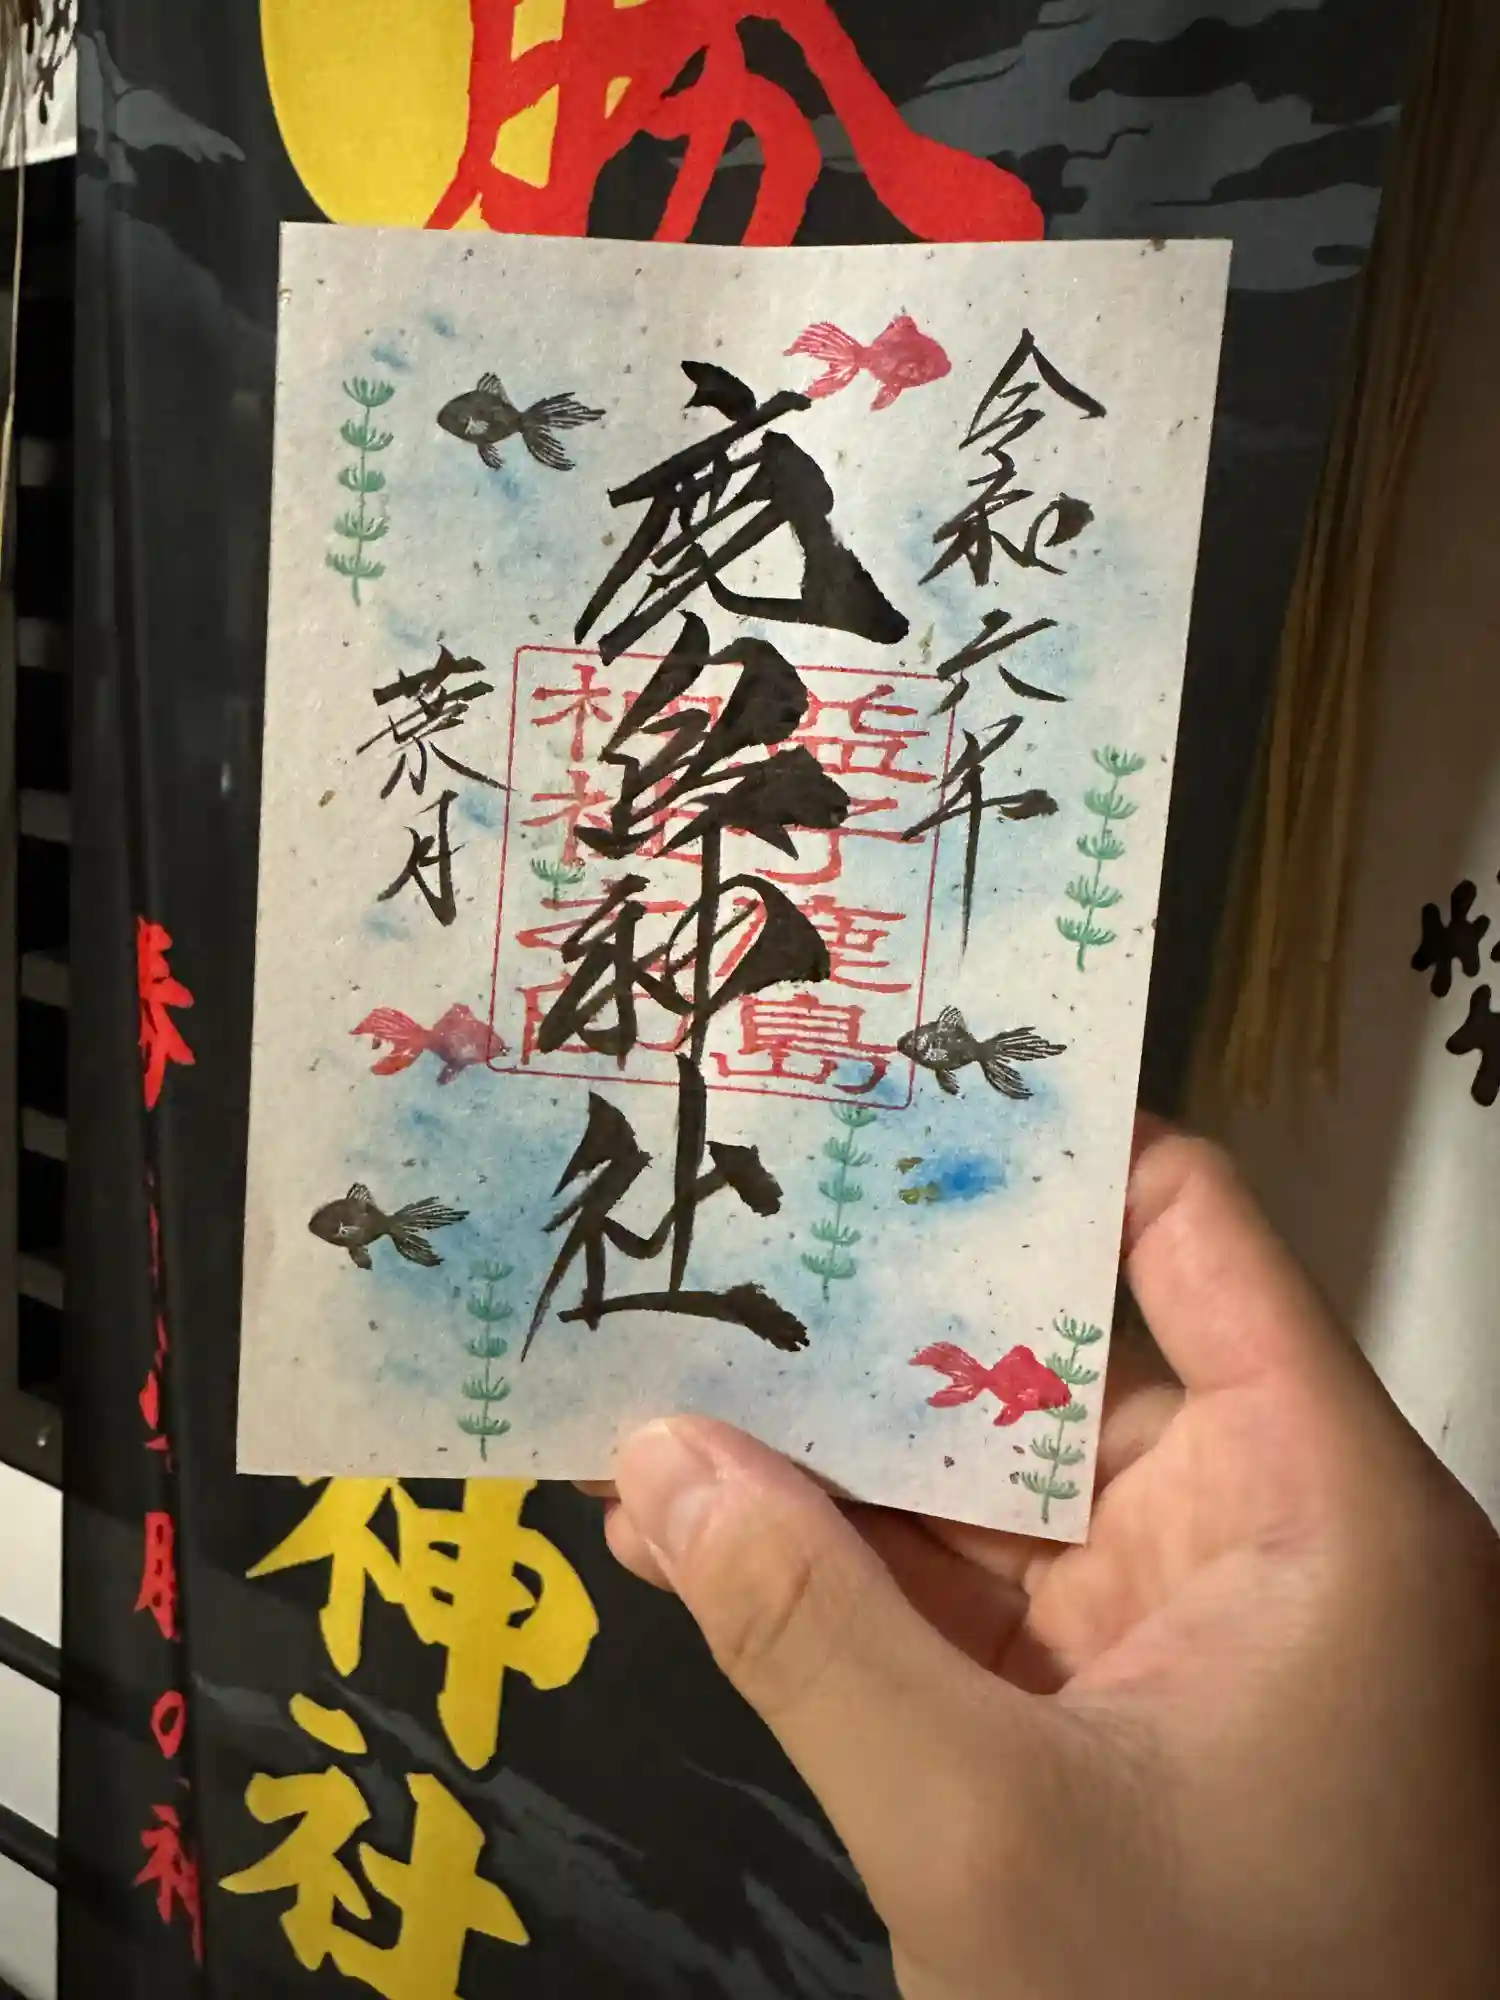 勝
令和六年
鹿島神社
益子鹿島
神社之印
葉月
神社